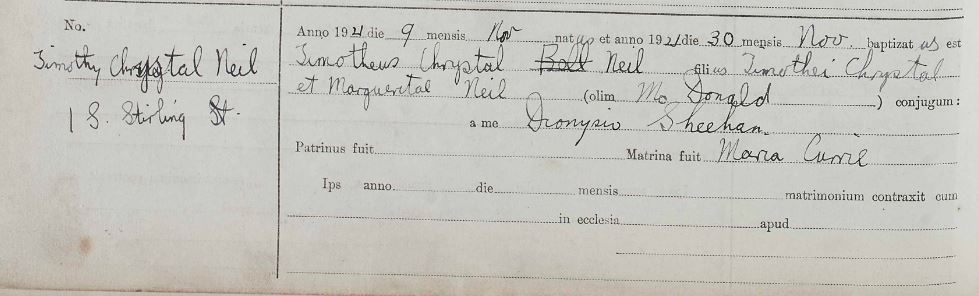 No.
Timothy Chrystal Neil
1 S. Stirling St.
Anno 1921 die 9 mensis Nov natus et anno 1921 die 30 mensis Nov. baptizatus est
Timotheus Chrystal Ball Neil filius Timothei Chrystal
et Margueritae Neil (olim Mc Donald) conjugum:
a me Dionysio Sheehan
Patrinus fuit Matrina fuit Maria Currie
Ips anno die mensis matrimonium contraxit cum
in ecclesia apud